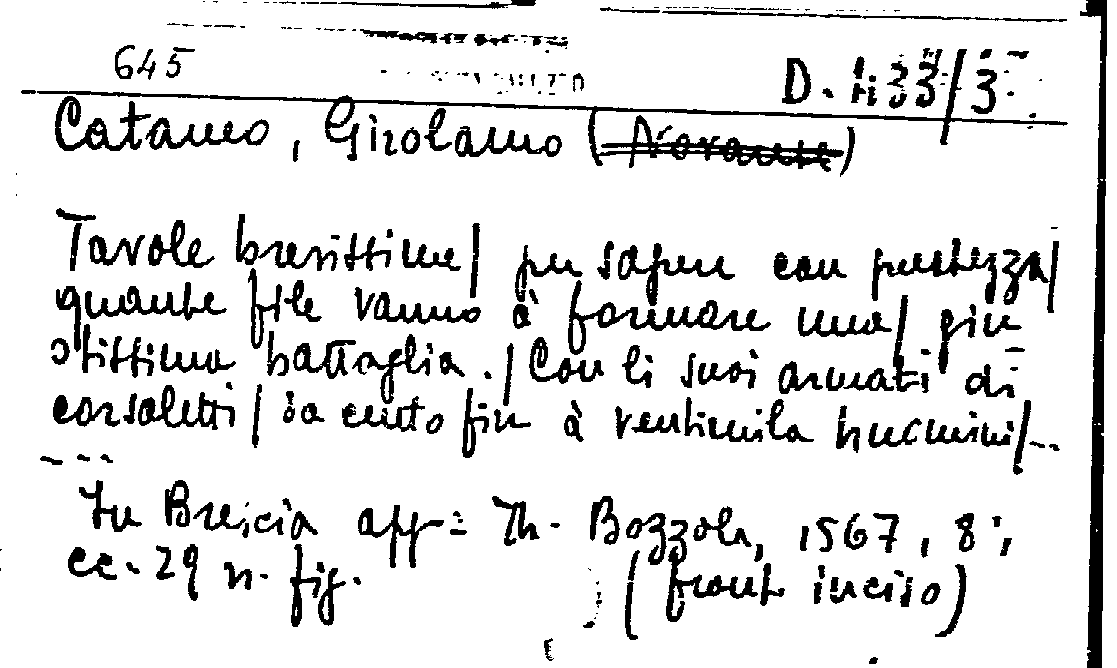 645 D. 133/3.
Cataneo, Girolamo (Novarese)
Tavole brevissime/ per sapere con prestezza/
quante file vanno à formare una/ giu
stissima battaglia./ Con li suoi armati di
corsaletti/ da cento fin à ventimila huomini/...
---
In Brescia app= Th. Bozzola, 1567, 8°,
cc. 29 n. fig. (front inciso)